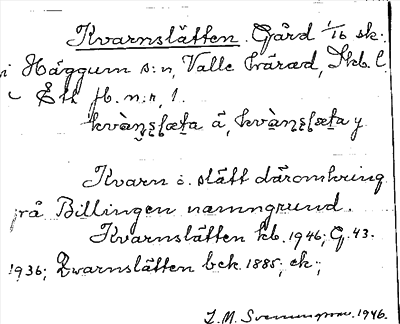 Kvarnslätten. Gård 1/16 sk.
i Häggum s:n, Valle härad, Skb. l.
Ek. fb. n:r, 1.
kvàn̥ʂʅæt̠a å, kvàn̥ʂʅæt̠a y
Kvarn o. slätt däromkring
på Billingen namngrund.
Kvarnslätten kb. 1946; G. 43.
1936; Qvarnslätten bek. 1885; ek.;
1946.